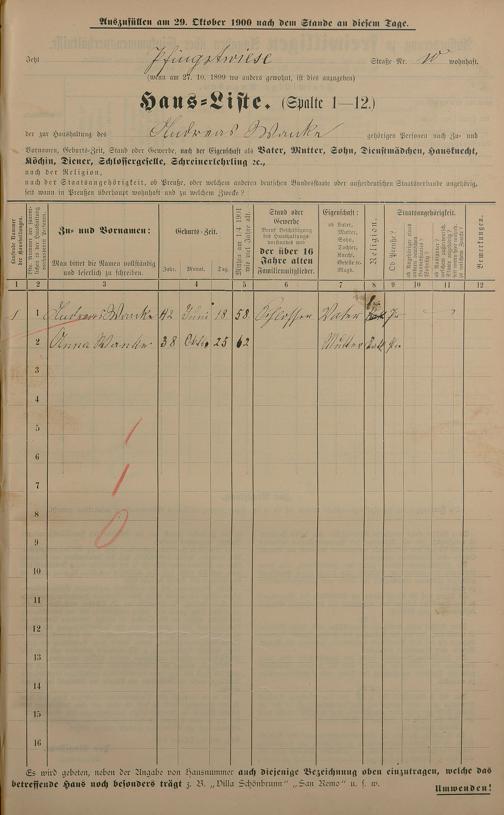 Auszufüllen am 29. Oktober 1900 nach dem Stande an diesem Tage.
Jetzt Pfingstwiese Straße Nr. 10 wohnhaft.
(wenn am 27. 10. 1899 wo anders gewohnt, ist dies anzugeben)
Haus-Liste. (Spalte 1—12.)
der zur Haushaltung des Andreas Wanke gehörigen Personen nach Zu- und
Vornamen, Geburts-Zeit, Stand oder Gewerbe, nach der Eigenschaft als Vater, Mutter, Sohn, Dienstmädchen, Hausknecht,
Köchin, Diener, Schlossergeselle, Schreinerlehrling ec.,
nach der Religion,
nach der Staatsangehörigkeit, ob Preuße, oder welchem anderen deutschen Bundesstaate oder außerdeutschen Staatsverbande angehörig,
seit wann in Preußen überhaupt wohnhaft und zu welchem Zwecke?
Laufende Nummer der Haushaltungen.
Zu- und Vornamen:
Man bittet die Namen vollständig und leserlich zu schreiben.
Geburts-Zeit.
Jahr. Monat. Tag.
Mithin am 1/4 1901 wie viel Jahre alt.
Stand oder Gewerbe
der über 16 Jahre alten Familienmitglieder.
Eigenschaft:
ob Vater, Mutter, Sohn, Tochter, Knecht, Geselle ec. Magd.
Religion.
Staatsangehörigkeit.
Ob Preuße?
Bemerkungen.
1 2 3 4 5 6 7 8 9 10 11 12
1 1 Andreas Wanke 42 Juni 18 58 Schlosser Vater Pr
2 Anna Wanke 38 Okto. 25 62 Mutter Kath Pr.
3
4
5
6
7
8
9
10
11
12
13
14
15
16
1
1
0
Es wird gebeten, neben der Angabe von Hausnummer auch diejenige Bezeichnung oben einzutragen, welche das
betreffende Haus noch besonders trägt z. B. „Villa Schönbrunn" „San Remo" u. s. w.
Umwenden!